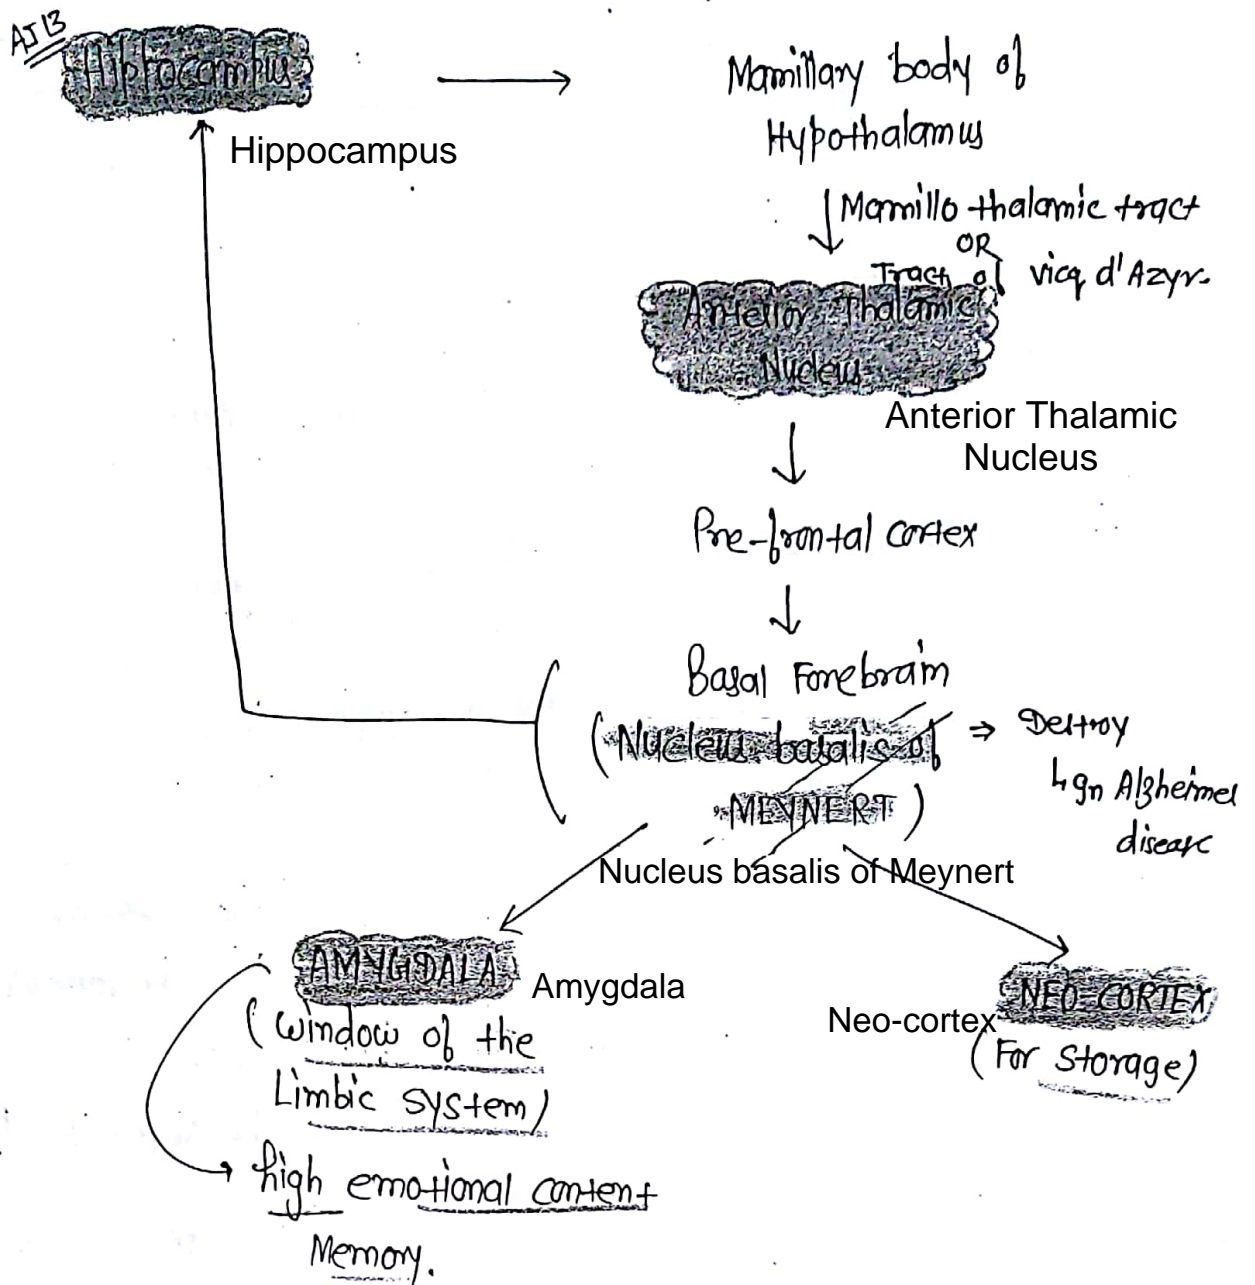 AJ13
Hippocampus
Hippocampus
Mamillary body of
Hypothalamus
Mamillo thalamic tract
OR
Tract of vicq d'Azyr.
Anterior Thalamic
Nucleus
Anterior Thalamic
Nucleus
Pre-frontal cortex
Basal Forebrain
(Nucleus basalis of
MEYNERT)
⇒ Destroy
↳ In Alzheimer
disease
Nucleus basalis of Meynert
AMYGDALA
Amygdala
(window of the
Limbic system)
high emotional content
Memory.
NEO-CORTEX
Neo-cortex
(For storage)